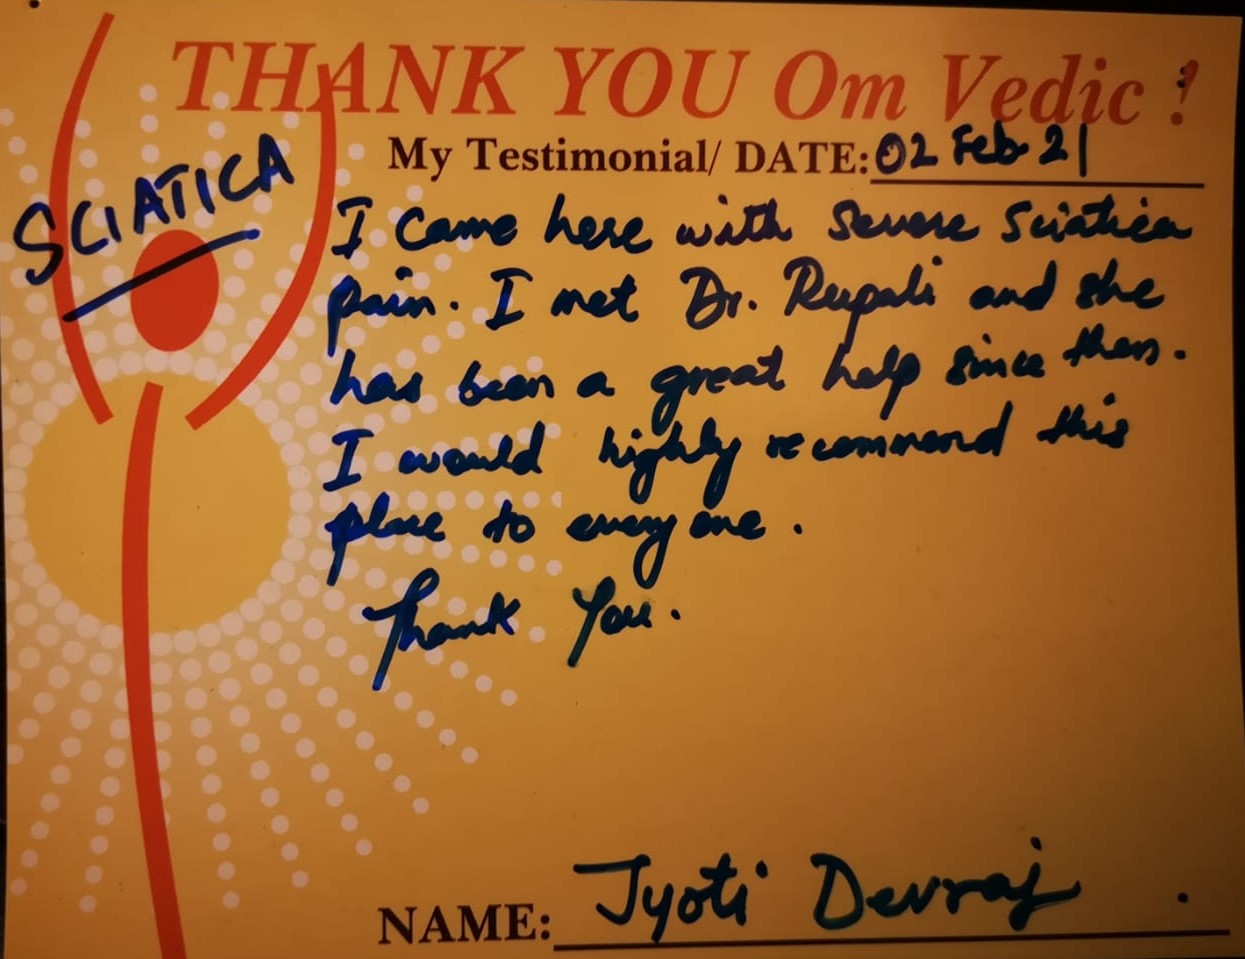 THANK YOU Om Vedic !
My Testimonial/ DATE: 02 Feb 21
SCIATICA
I came here with severe Sciatica
pain. I met Dr. Rupali and she
has been a great help since then.
I would highly recommend this
place to everyone.
Thank You.
NAME: Jyoti Devraj